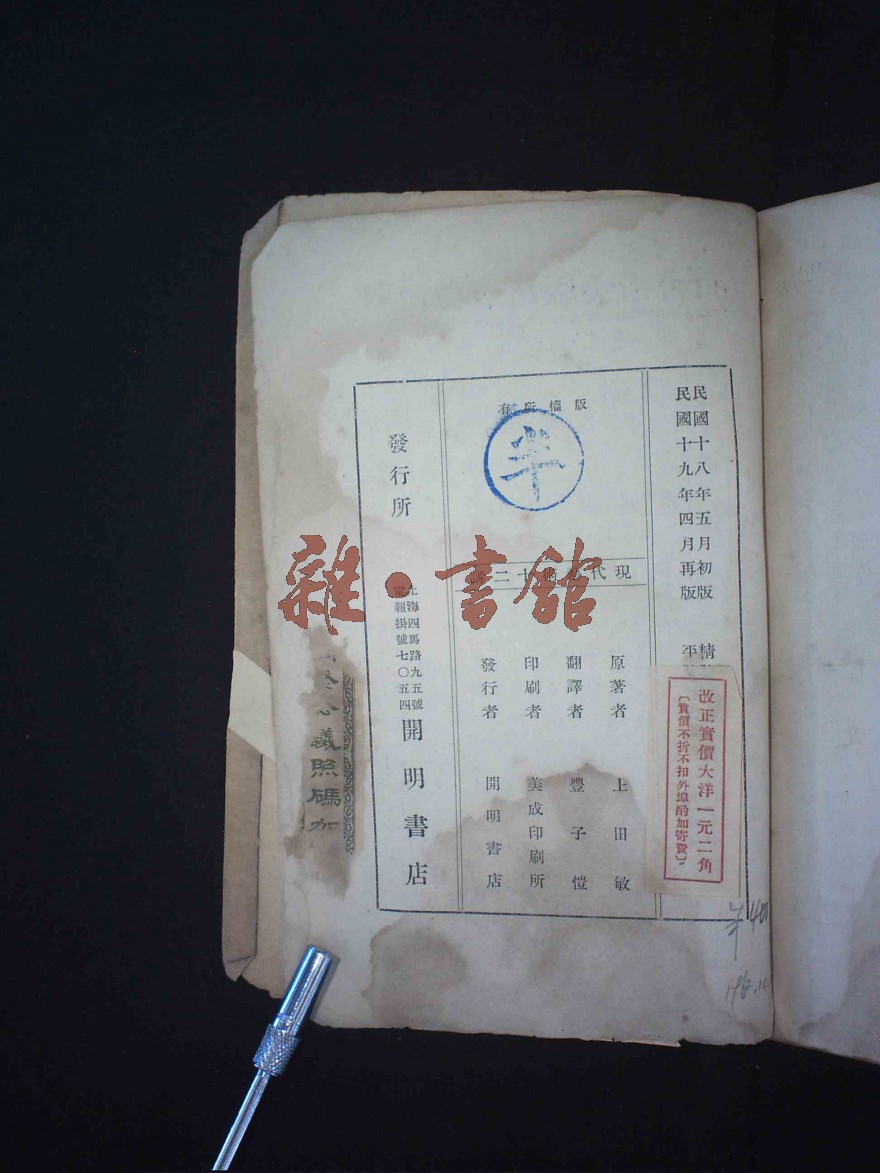 民國十八年五月初版
民國十九年四月再版
精
平
改正實價大洋一元二角
〔實價不折不扣外埠酌加寄費〕
版權所有
半
現代 十二
原著者 上田敏
翻譯者 豐子愷
印刷者 美成印刷所
發行者 開明書店
發行所
上海四馬路九五號
報掛號七〇五四
開明書店
公議照碼加
雜·書館